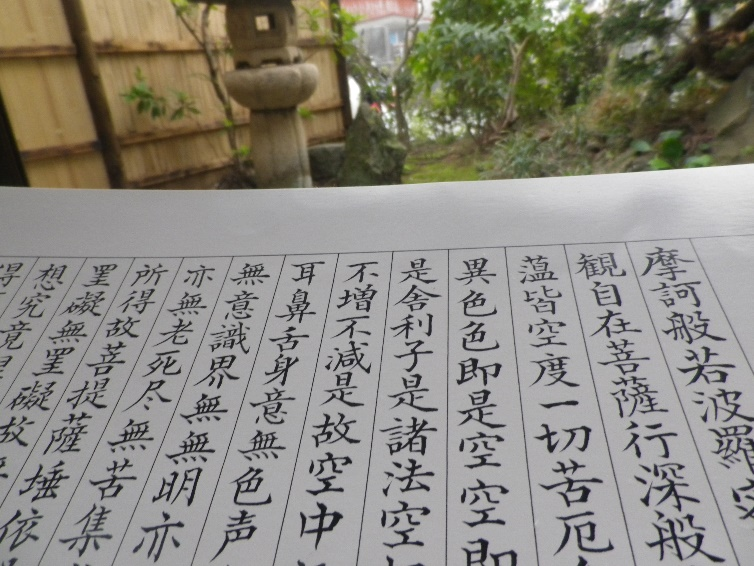 摩訶般若波羅
観自在菩薩行深般
蘊皆空度一切苦厄
異色色即是空空即
是舎利子是諸法空
不増不減是故空中
耳鼻舌身意無色声
無意識界無無明亦
亦無老死尽無苦集
所得故菩提薩埵依
罣礙無罣礙故
想究竟
得